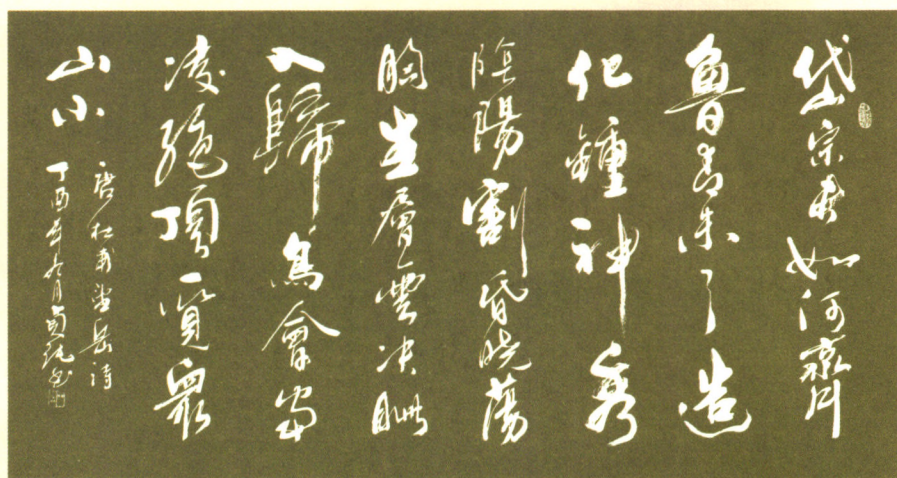 岱宗夫如何齊
魯青未了造
化鍾神秀
陰陽割昏曉蕩
胸生層雲决眦
入歸鳥會當
凌絶頂一覽衆
山小
唐杜甫望岳詩
丁酉年九月